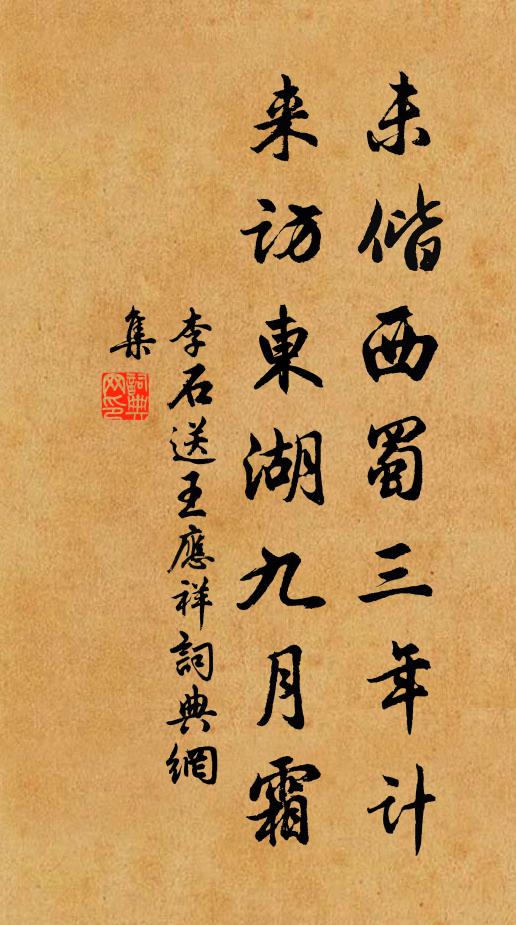 未偕西蜀三年计
来访東湖九月霜
李石送王應祥詞典網
集
詞典
网印